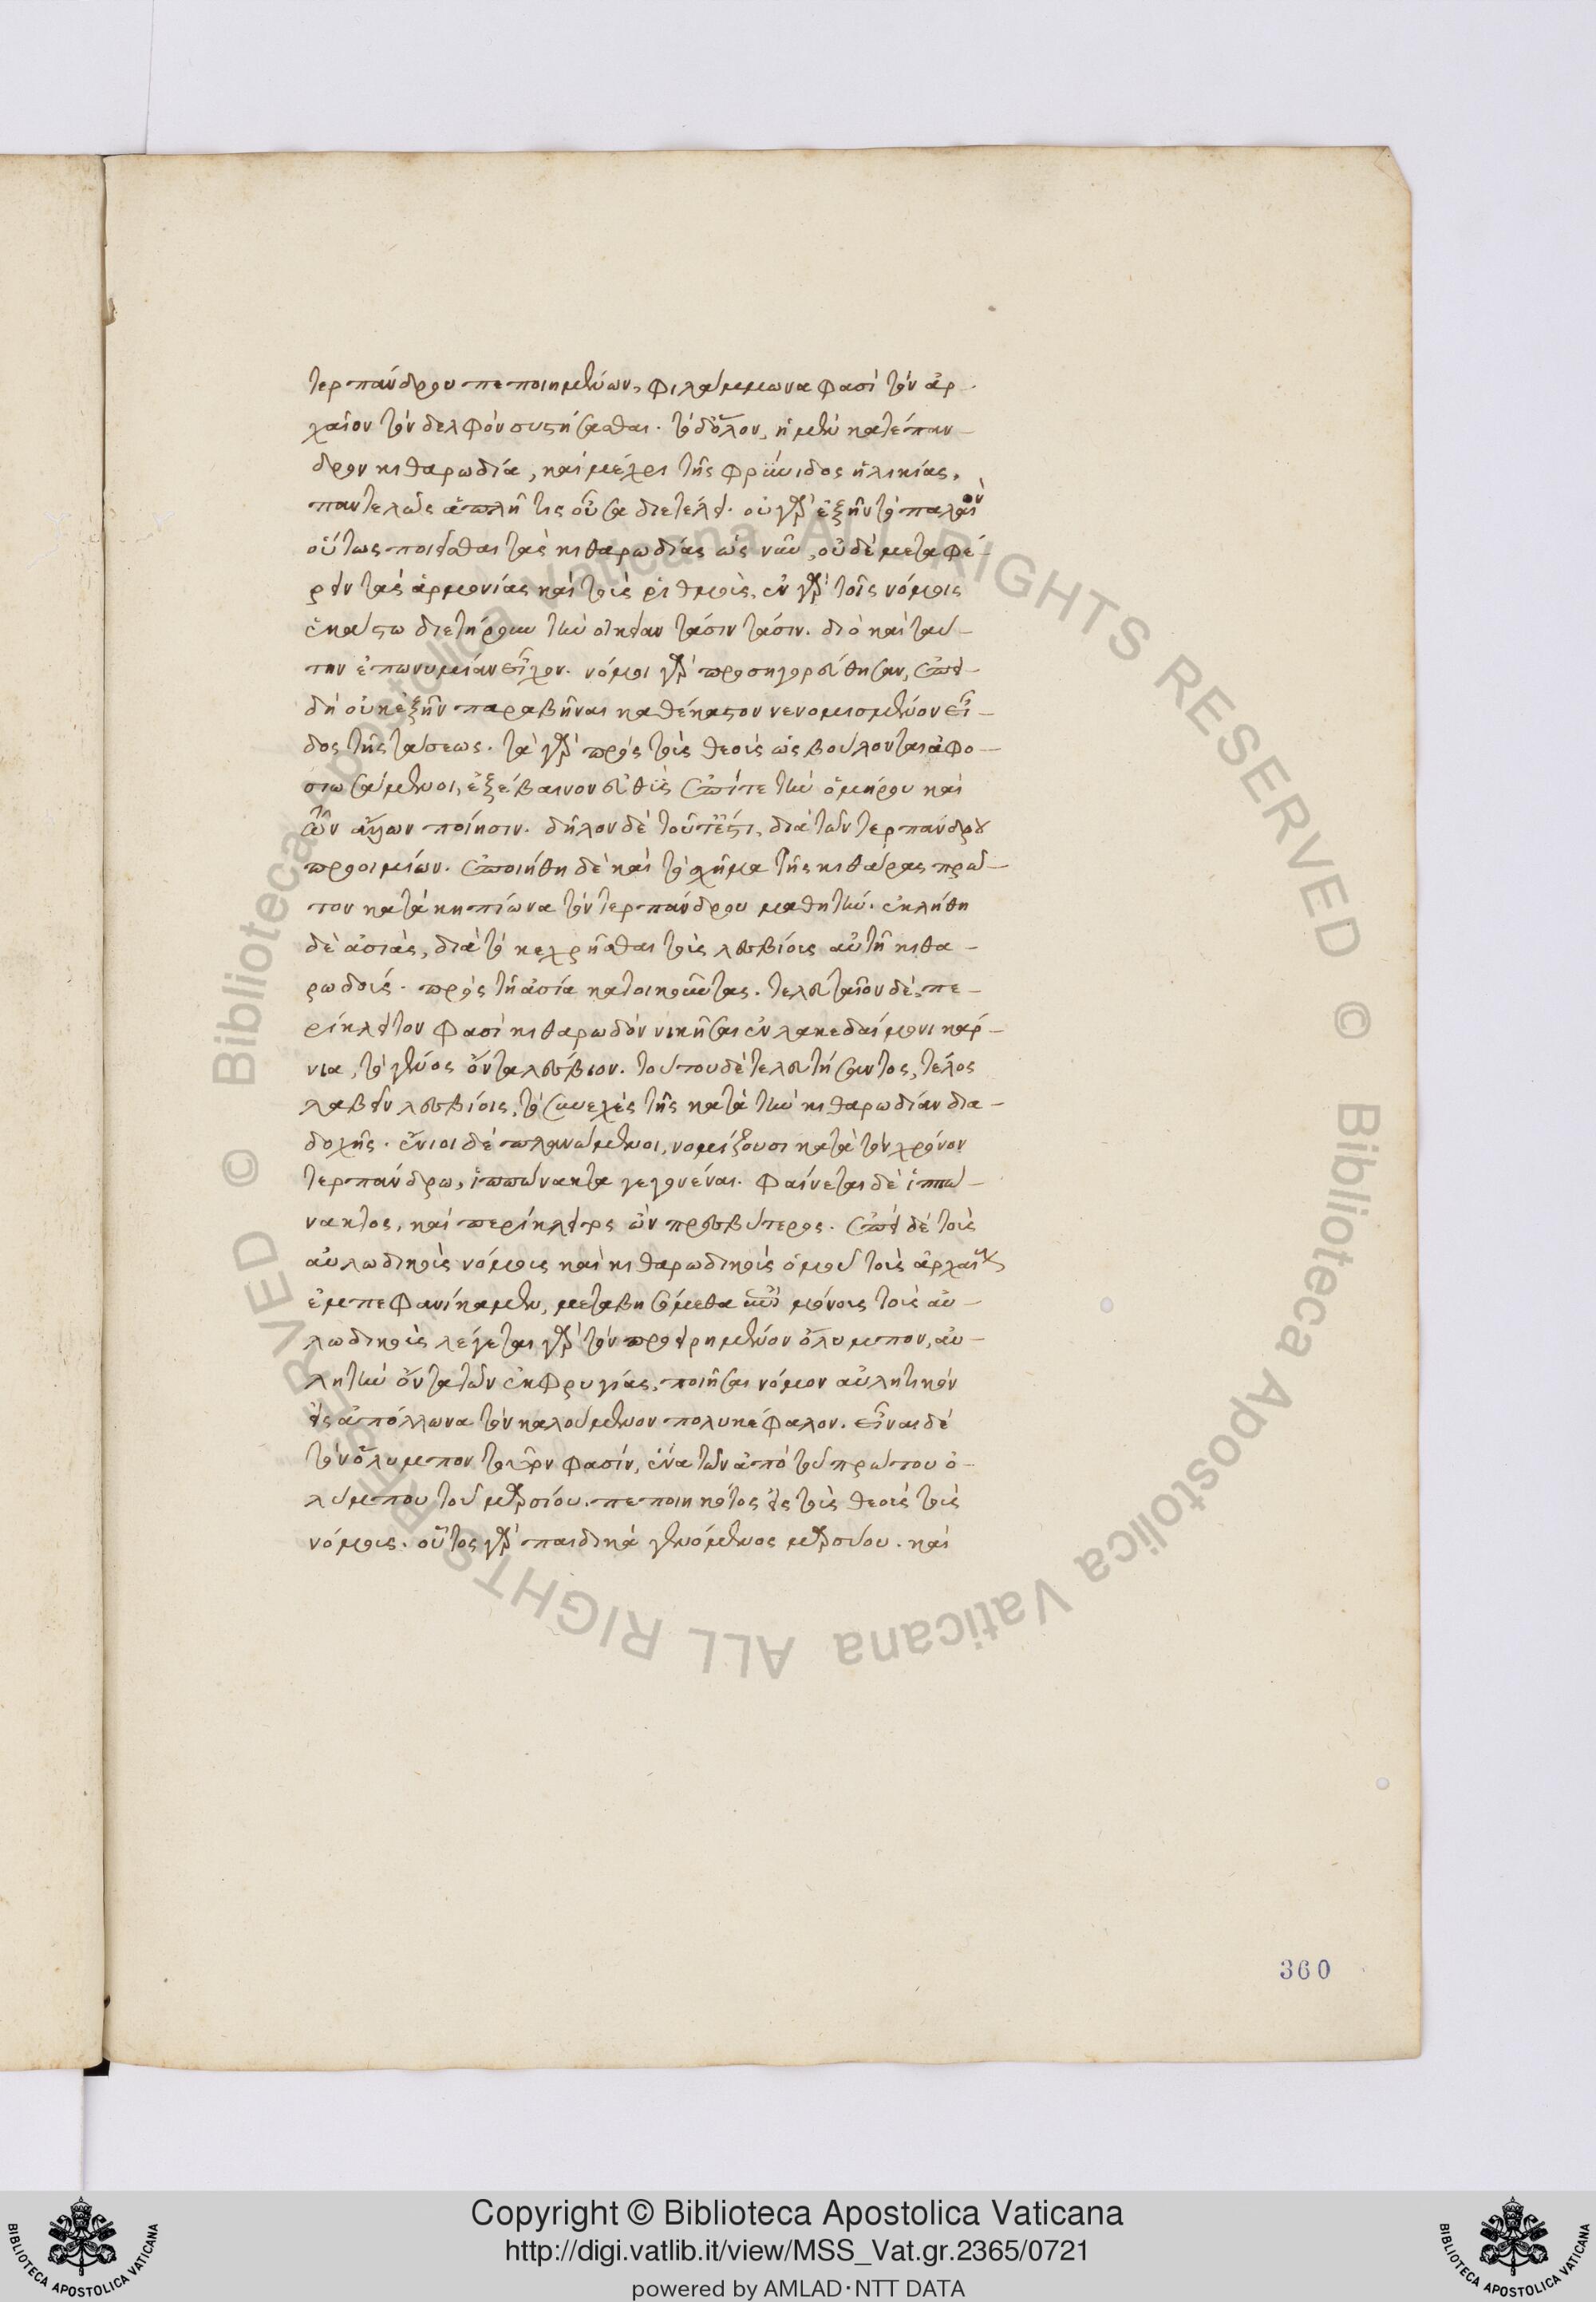 τερπάνδρου πεποιημένων, φιλάμμωνα φασὶ τὸν ἀρ-
χαῖον τὸν δελφὸν συστήσασθαι. τὸ δ' ὅλον, ἡ μὲν κατὲπαν-
δρον κιθαρωδία, καὶ μέχρι τῆς φρύνιδος ἡλικίας,
παντελῶς ἁπλῆ τις οὖσα διετέλει. οὐ γὰρ ἐξῆν τὸ παλαιὸν
οὕτως ποιεῖσθαι τὰς κιθαρωδίας ὡς νῦν, οὐδὲ μεταφέ-
ρειν τὰς ἁρμονίας καὶ τοὺς ῥιθμούς, ἐν γὰρ τοῖς νόμοις
ἑκάστω διετήρουν τὴν οἰκείαν τάσιν τάσιν. διὸ καὶ ταύ-
την ἐπωνυμίαν εἶχον. νόμοι γὰρ προσηγορεύθησαν, ἐπει-
δὴ οὐκ ἐξῆν παραβῆναι καθέκαστον νενομισμένον εἶ-
δος τῆς τάσεως. τὰ γὰρ πρὸς τοὺς θεοὺς ὡς βούλονται ἀφο-
σιωσάμενοι, ἐξέβαινον εὐθὺς ἐπί τε τὴν ὁμήρου καὶ
τῶν ἄλλων ποίησιν. δῆλον δὲ τοῦτ' ἐστι, διὰ τῶν τερπάνδρου
προοιμίων. ἐποιήθη δὲ καὶ τὸ σχῆμα τῆς κιθάρας πρῶ-
τον κατὰ κηπίωνα τὸν τερπάνδρου μαθητήν. ἐκλήθη
δὲ ἀσιὰς, διὰ τὸ κεχρῆσθαι τοὺς λεσβίοις αὐτῆ κιθα-
ρωδοὺς. πρὸς τῆ ἀσία κατοικοῦντας. τελευταῖον δὲ, πε-
ρίκλειτον φασὶ κιθαρωδὸν νικῆσαι ἐν λακεδαίμονι κάρ-
νια, τὸ γένος ὄντα λέσβιον. τούτου δὲ τελευτήσαντος, τέλος
λαβεῖν λεσβίοις, τὸ συνεχὲς τῆς κατὰ τὴν κιθαρωδίαν δια-
δοχῆς. ἔνιοι δὲ πλανώμενοι, νομίζουσι κατὰ τὸν χρόνον
τερπάνδρω, ἱππώνακτα γεγονέναι. φαίνεται δὲ ἱππώ-
νακτος, καὶ περίκλειτος ὢν πρεσβύτερος. ἐπεὶ δὲ τοὺς
αὐλωδικοὺς νόμους καὶ κιθαρωδικοὺς ὁμοῦ τοὺς ἀρχαίους
ἐμπεφανίκαμεν, μεταβησόμεθα ἐπὶ μόνους τοὺς αὐ-
λωδικούς λέγεται γὰρ τὸν προειρημένον ὄλυμπον, αὐ-
λητὴν ὄντα τῶν ἐκ φρυγίας, ποιῆσαι νόμον αὐλητικὸν
εἰς ἀπόλλωνα τὸν καλούμενον πολυκέφαλον. εἶναι δὲ
τὸν ὄλυμπον τοῦτον φασίν, ἕνα τῶν ἀπὸ τοῦ πρώτου ὀ-
λύμπου τοῦ μαρσύου. πεποιηκότος εἰς τοὺς θεοὺς τοὺς
νόμους. οὗτος γὰρ παιδικὰ γενόμενος μαρσύου. καὶ
360
Copyright © Biblioteca Apostolica Vaticana
http://digi.vatlib.it/view/MSS_Vat.gr.2365/0721
powered by AMLAD·NTT DATA